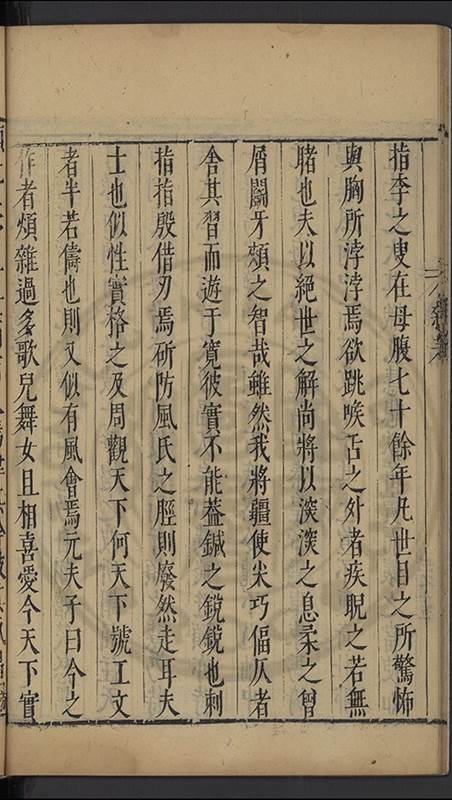 指李之叟在母腹七十餘年凡世目之所驚怖
與胸所浡浡焉欲跳喉舌之外者疾睨之若無
睹也夫以絕世之解尚將以漠漠之息柔之曾
屑鬬牙頰之智哉雖然我將疆使尖巧偪仄者
舍其習而遊于寬彼實不能葢鍼之銳銳也刺
指指殷借刃焉斫防風氏之脛則廢然走耳夫
士也似性實格之及周觀天下何天下號工文
者半若儔也則又似有風會焉元夫子曰今之
作者煩雜過多歌兒舞女且相喜愛今天下實